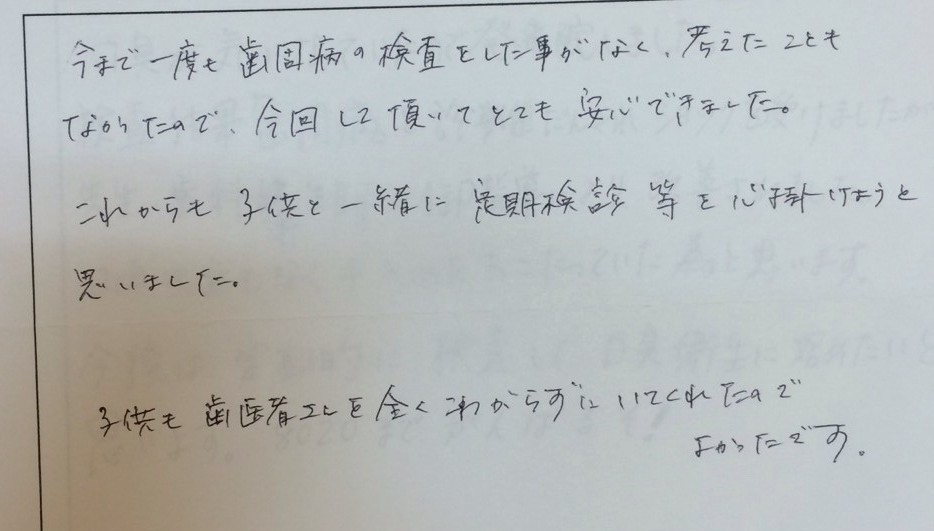 今まで一度も歯周病の検査をした事がなく、考えたことも
なかったので、今回して頂いてとても安心できました。
これからも子供と一緒に定期検診等を心掛けようと
思いました。
子供も歯医者さんを全くこわがらずにいてくれたので
よかったです。